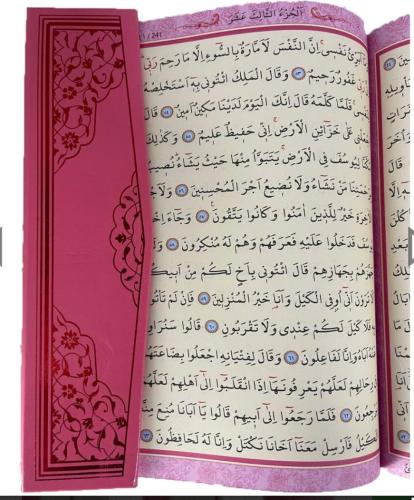 اَلْجُزْءُ الثَّالِثَ عَشَرَ
241
نَفْسِى اِنَّ النَّفْسَ لَاَمَّارَةٌ بِالسُّوءِ اِلَّا مَا رَحِمَ رَبِّى
غَفُورٌ رَحِيمٌ ﴿٥٣﴾ وَقَالَ الْمَلِكُ ائْتُونِى بِهِ اَسْتَخْلِصْهُ
فَلَمَّا كَلَّمَهُ قَالَ اِنَّكَ الْيَوْمَ لَدَيْنَا مَكِينٌ اَمِينٌ ﴿٥٤﴾ قَالَ
عَلٰى خَزَٓائِنِ الْاَرْضِ اِنِّى حَفِيظٌ عَلِيمٌ ﴿٥٥﴾ وَكَذٰلِكَ
لِيُوسُفَ فِى الْاَرْضِ يَتَبَوَّاُ مِنْهَا حَيْثُ يَشَٓاءُ نُصِيبُ
مَنْ نَشَٓاءُ وَلَا نُضِيعُ اَجْرَ الْمُحْسِنِينَ ﴿٥٦﴾
خَيْرٌ لِلَّذِينَ اٰمَنُوا وَكَانُوا يَتَّقُونَ ﴿٥٧﴾ وَجَٓاءَ
فَدَخَلُوا عَلَيْهِ فَعَرَفَهُمْ وَهُمْ لَهُ مُنْكِرُونَ ﴿٥٨﴾
بِجَهَازِهِمْ قَالَ ائْتُونِى بِاَخٍ لَكُمْ مِنْ اَبِيكُمْ
تَرَوْنَ اَنِّٓى اُوفِى الْكَيْلَ وَاَنَا خَيْرُ الْمُنْزِلِينَ ﴿٥٩﴾ فَاِنْ لَمْ
فَلَا كَيْلَ لَكُمْ عِنْدِى وَلَا تَقْرَبُونِ ﴿٦٠﴾ قَالُوا سَنُرَاوِدُ
اَبَاهُ وَاِنَّا لَفَاعِلُونَ ﴿٦١﴾ وَقَالَ لِفِتْيَانِهِ اجْعَلُوا بِضَاعَتَهُمْ
رِحَالِهِمْ لَعَلَّهُمْ يَعْرِفُونَهَٓا اِذَا انْقَلَبُٓوا اِلٰٓى اَهْلِهِمْ لَعَلَّهُمْ
﴿٦٢﴾ فَلَمَّا رَجَعُٓوا اِلٰٓى اَبِيهِمْ قَالُوا يَٓا اَبَانَا مُنِعَ مِنَّا
فَاَرْسِلْ مَعَنَٓا اَخَانَا نَكْتَلْ وَاِنَّا لَهُ لَحَافِظُونَ ﴿٦٣﴾